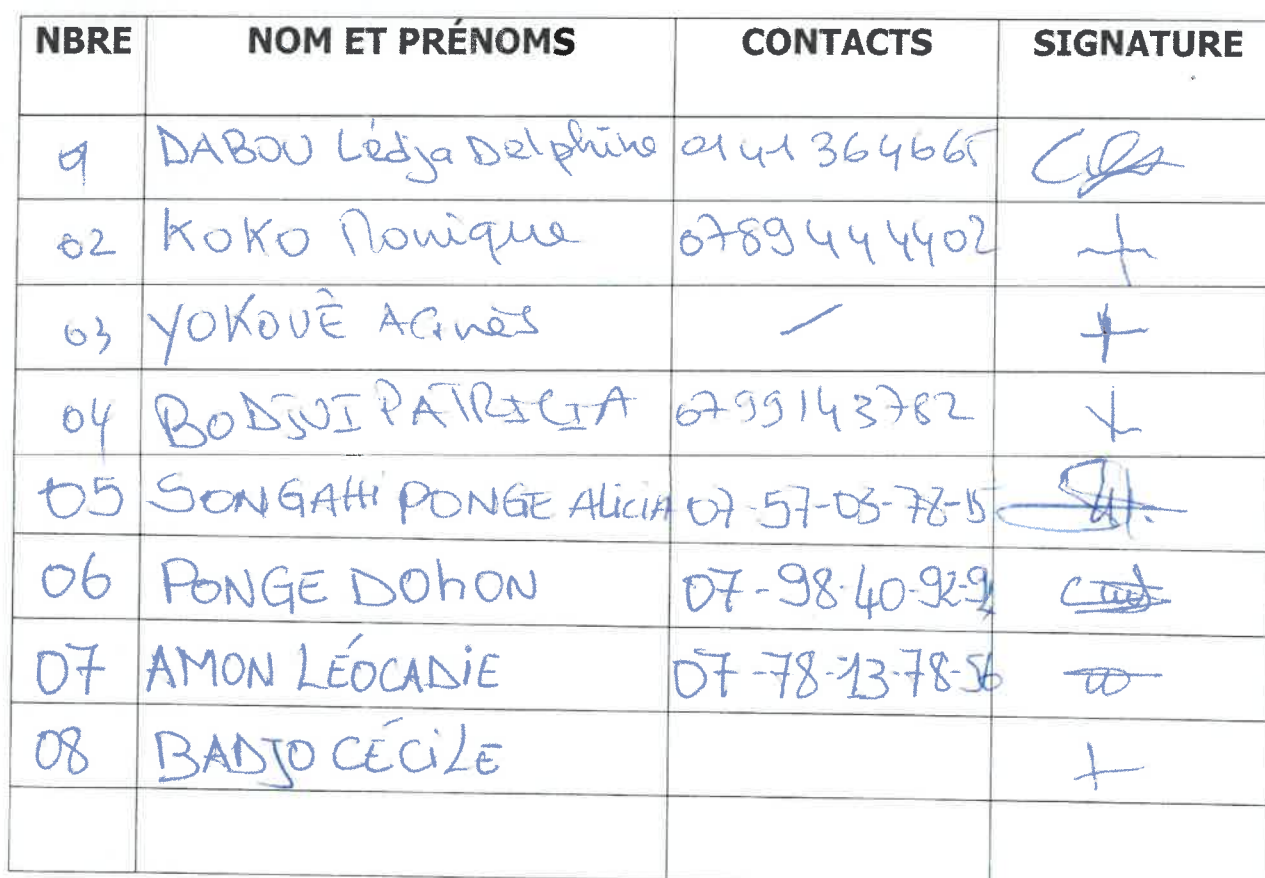 NBRE NOM ET PRÉNOMS CONTACTS SIGNATURE
01 DABOU Lédja Delphine 0141364665
02 KOKO Monique 0789444402
03 YOKOUÊ AGnès / +
04 BODJUI PATRICIA 0799143782
05 SONGAHI PONGE ALiCiA 07-57-03-78-15
06 PONGE DOhON 07-98-40-92-92
07 AMON LÉOCADiE 07-78-13-78-56
08 BADJO CÉCiLE +